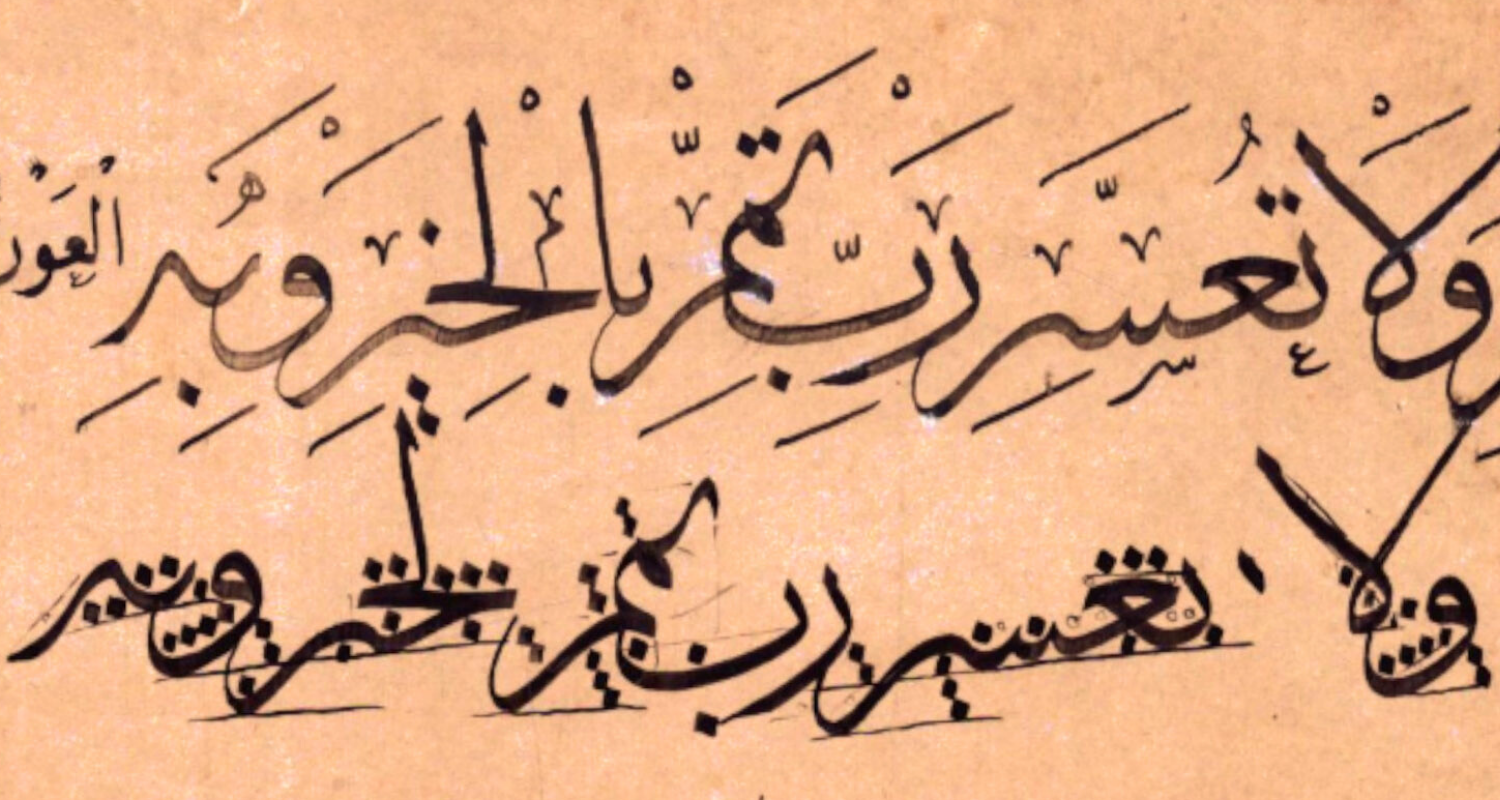 وَلَا تُعَسِّرْ رَبِّ تَمِّمْ بِالْخَيْرِ وَبِهِ الْعَوْن
ولا تعسر رب تمم بالخير وبه